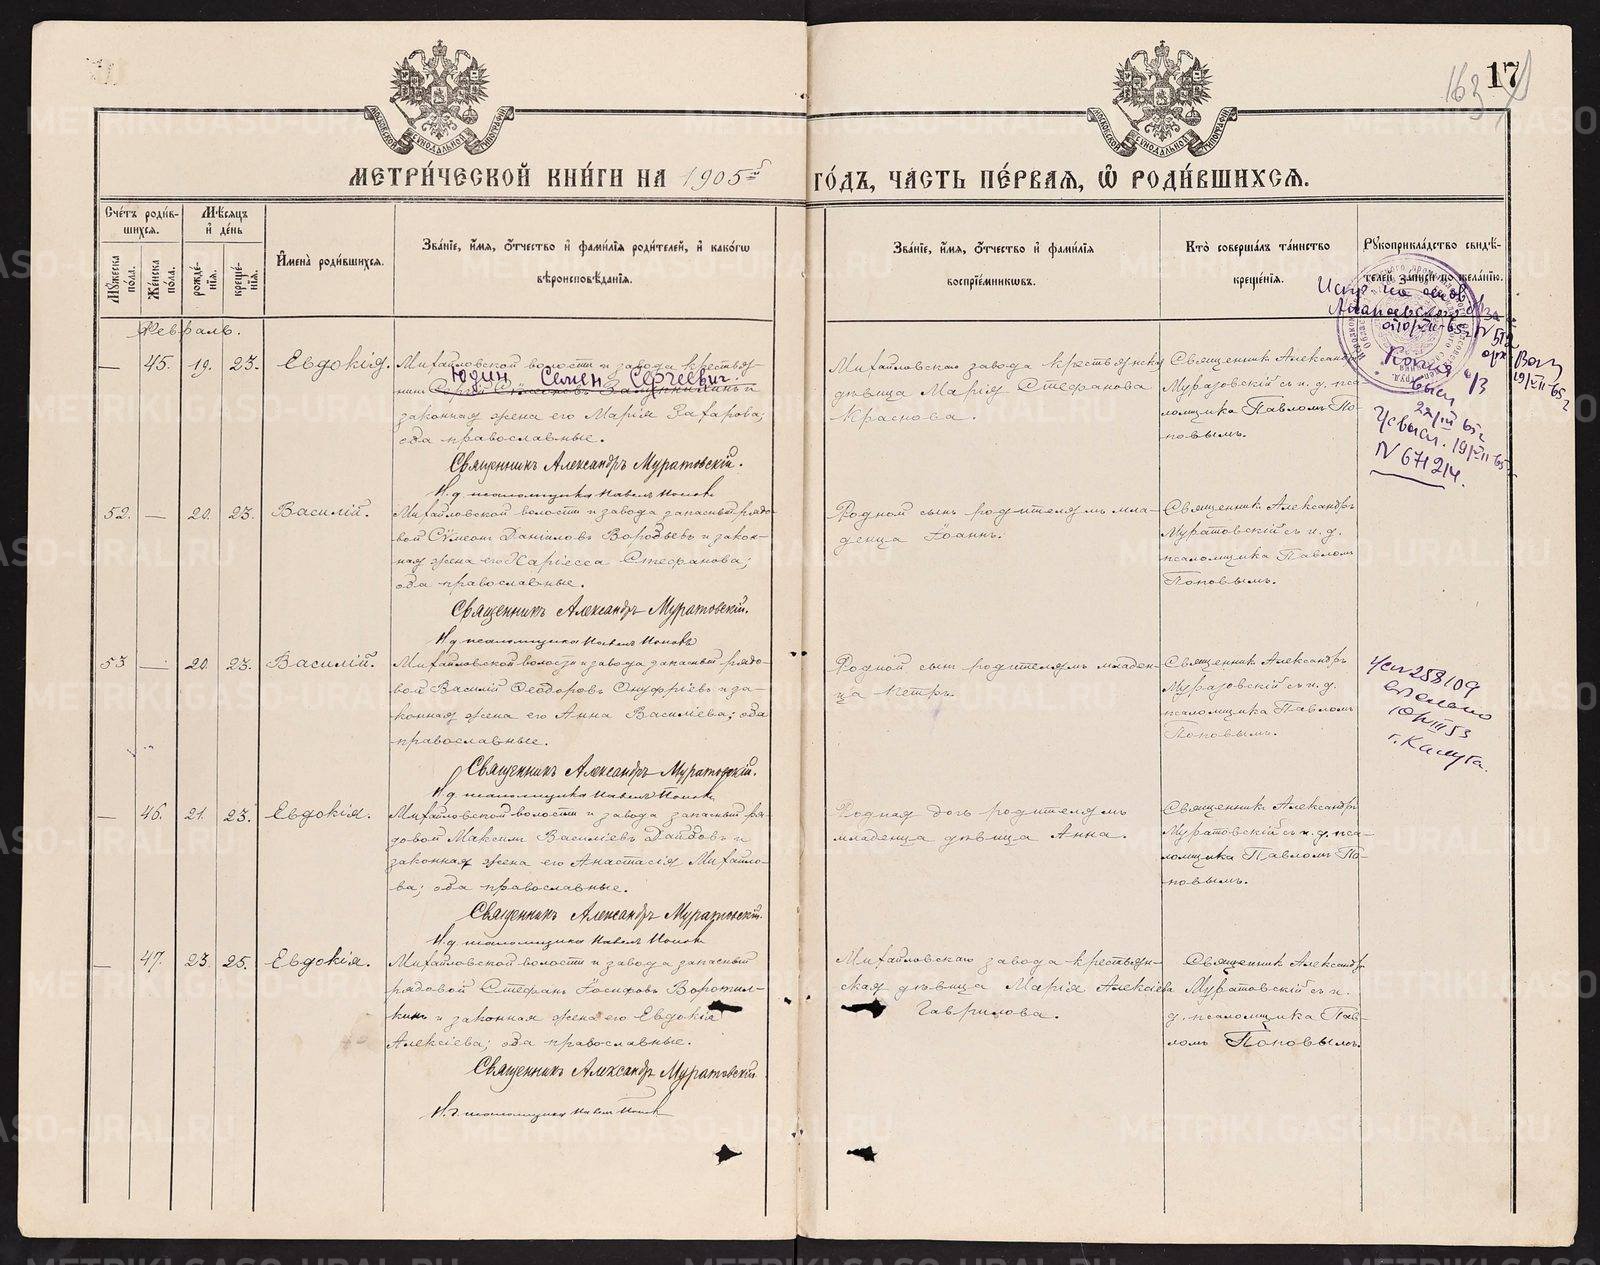 163
17
МОСКОВСКОЙ СѴНОДАЛЬНОЙ ТИПОГРАФІИ
МОСКОВСКОЙ СѴНОДАЛЬНОЙ ТИПОГРАФІИ
МЕТРИ́ЧЕСКОЙ КНИ́ГИ НА 1905й ГО́ДЪ, ЧА́СТЬ ПЕ́РВАѦ, Ѡ РОДИ́ВШИХСѦ.
Сче́тъ роди́в-
шихся.
Мѣ́сяцъ
и҆ де́нь
Мꙋ́жеска по́ла.
Же́нска по́ла.
рожде́-
нїя.
креще́-
нїя.
И҆мена̀ роди́вшихся.
Зва́нїе, и҆́мя, ѻ҆́тчество и҆ фами́лїя роди́телей, и҆ како́гѡ
вѣроисповѣ́данїя.
Зва́нїе, и҆́мя, ѻ҆́тчество и҆ фами́лїя
воспрїе́мникѡвъ.
Кто̀ соверша́лъ та́инство
креще́нїя.
Рꙋкоприкла́дство свидѣ́-
телей записи по жела́нїю.
Февраль.
— 45. 19. 23. Евдокія.
Михайловской волости и завода крестья-
нинъ
Юдин Семен Сергеевич.
законная жена его Марія Захарова;
оба православные.
Священникъ Александръ Муратовскій.
И.д. псаломщика Павелъ Поповъ
Михайловскаго завода крестьянская
дѣвица Марія Стефанова
Краснова.
Священникъ Александръ
Муратовскій съ и. д. пса-
ломщика Павломъ По-
повымъ.
Испр. на основ
Копия
выс
22/III 65г
Усвысл. 19/VII-65
N 671214.
52. — 20. 23. Василій.
Михайловской волости и завода запасный рядо-
вой Сѵмеонъ Даниловъ Воробьевъ и закон-
ная жена его Харіесса Стефанова;
оба православные.
Священникъ Александръ Муратовскій.
И.д. псаломщика Павелъ Поповъ
Родной сынъ родителямъ мла-
денца Іоаннъ.
Священникъ Александръ
Муратовскій съ и. д.
псаломщика Павломъ
Поповымъ.
53 — 20. 23. Василій.
Михайловской волости и завода запасный рядо-
вой Василій Ѳеодоровъ Онуфріевъ и за-
конная жена его Анна Василіева; оба
православные.
Священникъ Александръ Муратовскій.
И.д. псаломщика Павелъ Поповъ
Родной сынъ родителямъ младен-
ца Петръ.
Священникъ Александръ
Муратовскій съ и. д.
псаломщика Павломъ
Поповымъ.
258109
10/VIII 53
г. Калуга.
— 46. 21. 23. Евдокія.
Михайловской волости и завода запасный ря-
довой Максимъ Василіевъ и
законная жена его Анастасія Михайло-
ва; оба православные.
Священникъ Александръ Муратовскій.
И.д. псаломщика Павелъ Поповъ
Родная дочь родителямъ
младенца дѣвица Анна.
Священникъ Александръ
Муратовскій съ и. д. пса-
ломщика Павломъ По-
повымъ.
— 47. 23. 25. Евдокія.
Михайловской волости и завода запасный
рядовой Стефанъ Іосифовъ Воротил-
кинъ и законная жена его Евдокія
Алексіева; оба православные.
Священникъ Александръ Муратовскій
И.д. псаломщика Павелъ Поповъ
Михайловскаго завода крестьян-
ская дѣвица Марія Алексіева
Гаврилова.
Священникъ Александръ
Муратовскій съ и.
д. псаломщика Пав-
ломъ Поповымъ.
METRIKI.GASO-URAL.RU